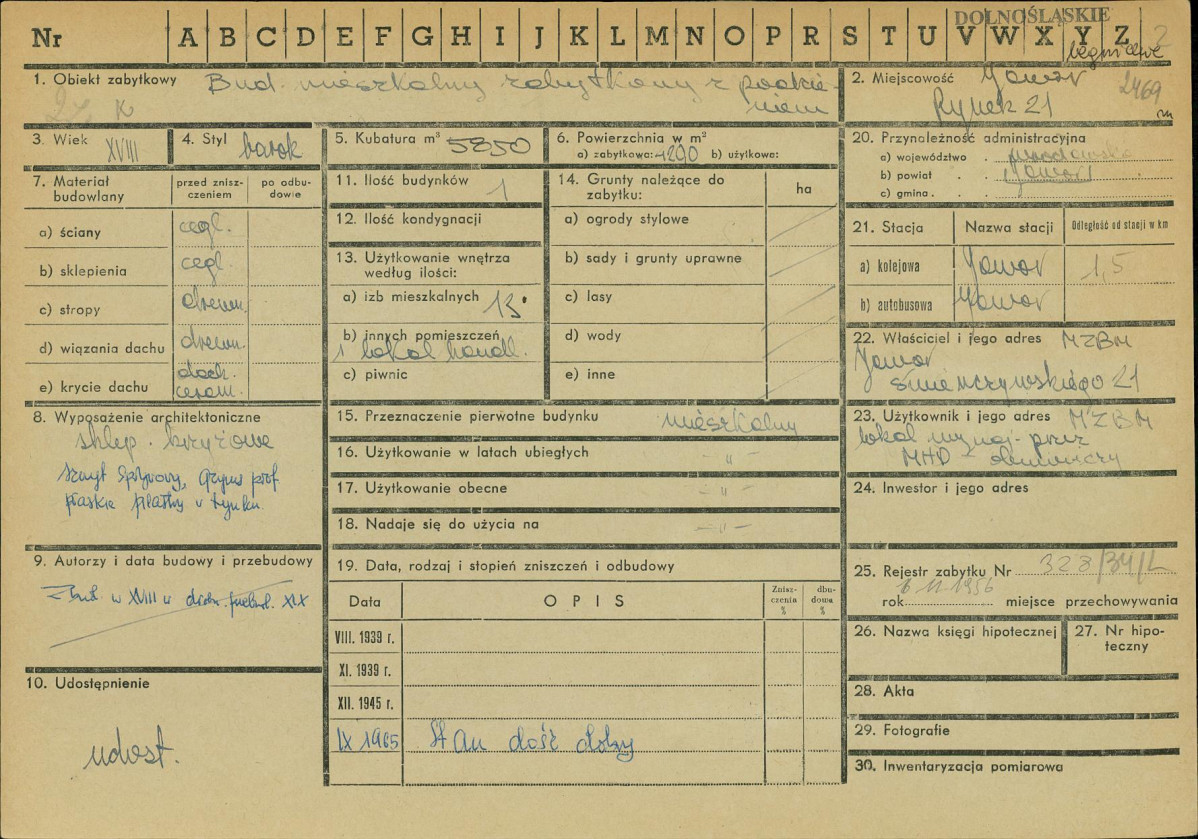 DOLNOŚLĄSKIE
Nr A B C D E F G H I J K L M N O P R S T U V W X Y Z 2
legnickie
1. Obiekt zabytkowy Bud. mieszkalny zabytkowy z podcie-
niem
K
2. Miejscowość Jawor
Rynek 21
2469
3. Wiek XVIII
4. Styl barok
5. Kubatura m³ 5850
6. Powierzchnia w m²
a) zabytkowa: 1290 b) użytkowe:
7. Materiał budowlany
przed znisz-
czeniem
po odbu-
dowie
a) ściany cegl.
b) sklepienia cegl.
c) stropy drewn.
d) wiązania dachu drewn.
e) krycie dachu dach.
ceram.
8. Wyposażenie architektoniczne
sklep. krzyżowe
szczyt spływowy, gzyms prof.
płaskie pilastry w tynku.
9. Autorzy i data budowy i przebudowy
Zbud. w XVIII w przebud. XIX
10. Udostępnienie
udost.
11. Ilość budynków 1
12. Ilość kondygnacji
13. Użytkowanie wnętrza
według ilości:
a) izb mieszkalnych 13.
b) innych pomieszczeń
1 lokal handl.
c) piwnic
14. Grunty należące do
zabytku:
ha
a) ogrody stylowe
b) sady i grunty uprawne
c) lasy
d) wody
e) inne
15. Przeznaczenie pierwotne budynku mieszkalny
16. Użytkowanie w latach ubiegłych - " -
17. Użytkowanie obecne - " -
18. Nadaje się do użycia na - " -
19. Data, rodzaj i stopień zniszczeń i odbudowy
Data OPIS
Znisz-
czenia
%
dbu-
dowa
%
VIII. 1939 r.
XI. 1939 r.
XII. 1945 r.
IX 1965 Stan dość dobry
20. Przynależność administracyjna
a) województwo . wrocławskie
b) powiat . . Jawor
c) gmina .
21. Stacja Nazwa stacji Odległość od stacji w km
a) kolejowa Jawor 1,5
b) autobusowa Jawor
22. Właściciel i jego adres MZBM
Jawor
21
23. Użytkownik i jego adres MZBM
lokal wynaj. przez
MHD - obuwniczy
24. Inwestor i jego adres
25. Rejestr zabytku Nr 328/34/L
rok 6 11.1956 miejsce przechowywania
26. Nazwa księgi hipotecznej
27. Nr hipo-
teczny
28. Akta
29. Fotografie
30. Inwentaryzacja pomiarowa